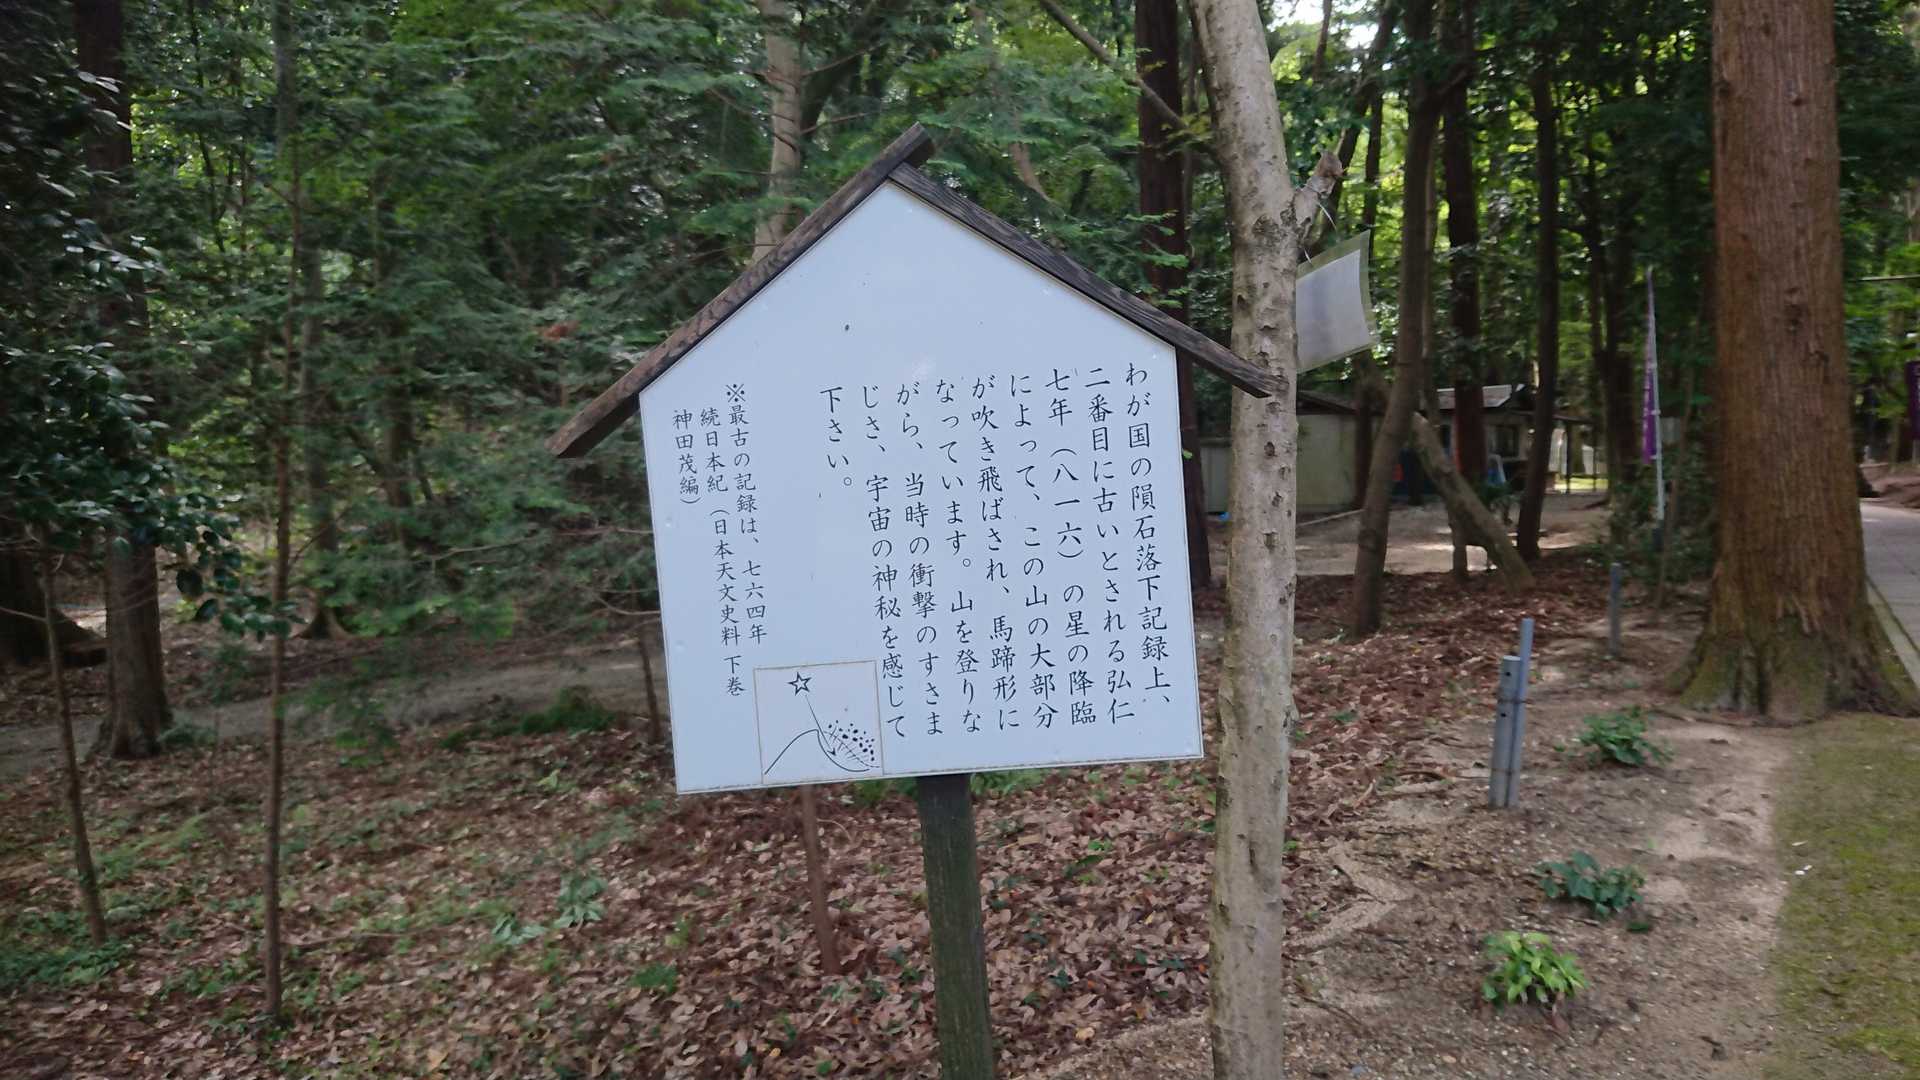 わが国の隕石落下記録上、
二番目に古いとされる弘仁
七年(八一六)の星の降臨
によって、この山の大部分
が吹き飛ばされ、馬蹄形に
なっています。山を登りな
がら、当時の衝撃のすさま
じさ、宇宙の神秘を感じて
下さい。
※最古の記録は、七六四年
続日本紀(日本天文史料 下巻
神田茂編)